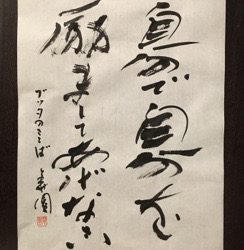 自分で自分を
励ましてあげなさい
ブッダのことば